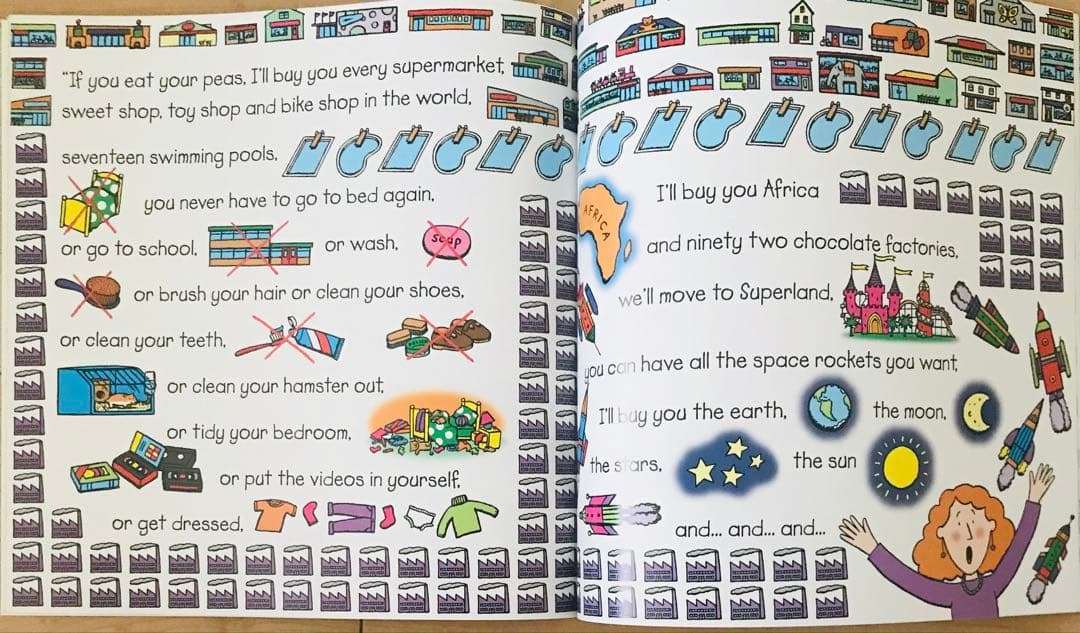 "If you eat your peas, I'll buy you every supermarket,
sweet shop, toy shop and bike shop in the world,
seventeen swimming pools,
you never have to go to bed again,
or go to school, or wash,
soap
or brush your hair or clean your shoes,
or clean your teeth,
or clean your hamster out,
or tidy your bedroom,
or put the videos in yourself,
or get dressed,
I'll buy you Africa
AFRICA
and ninety two chocolate factories,
we'll move to Superland,
you can have all the space rockets you want,
I'll buy you the earth, the moon,
the stars, the sun
and... and... and...